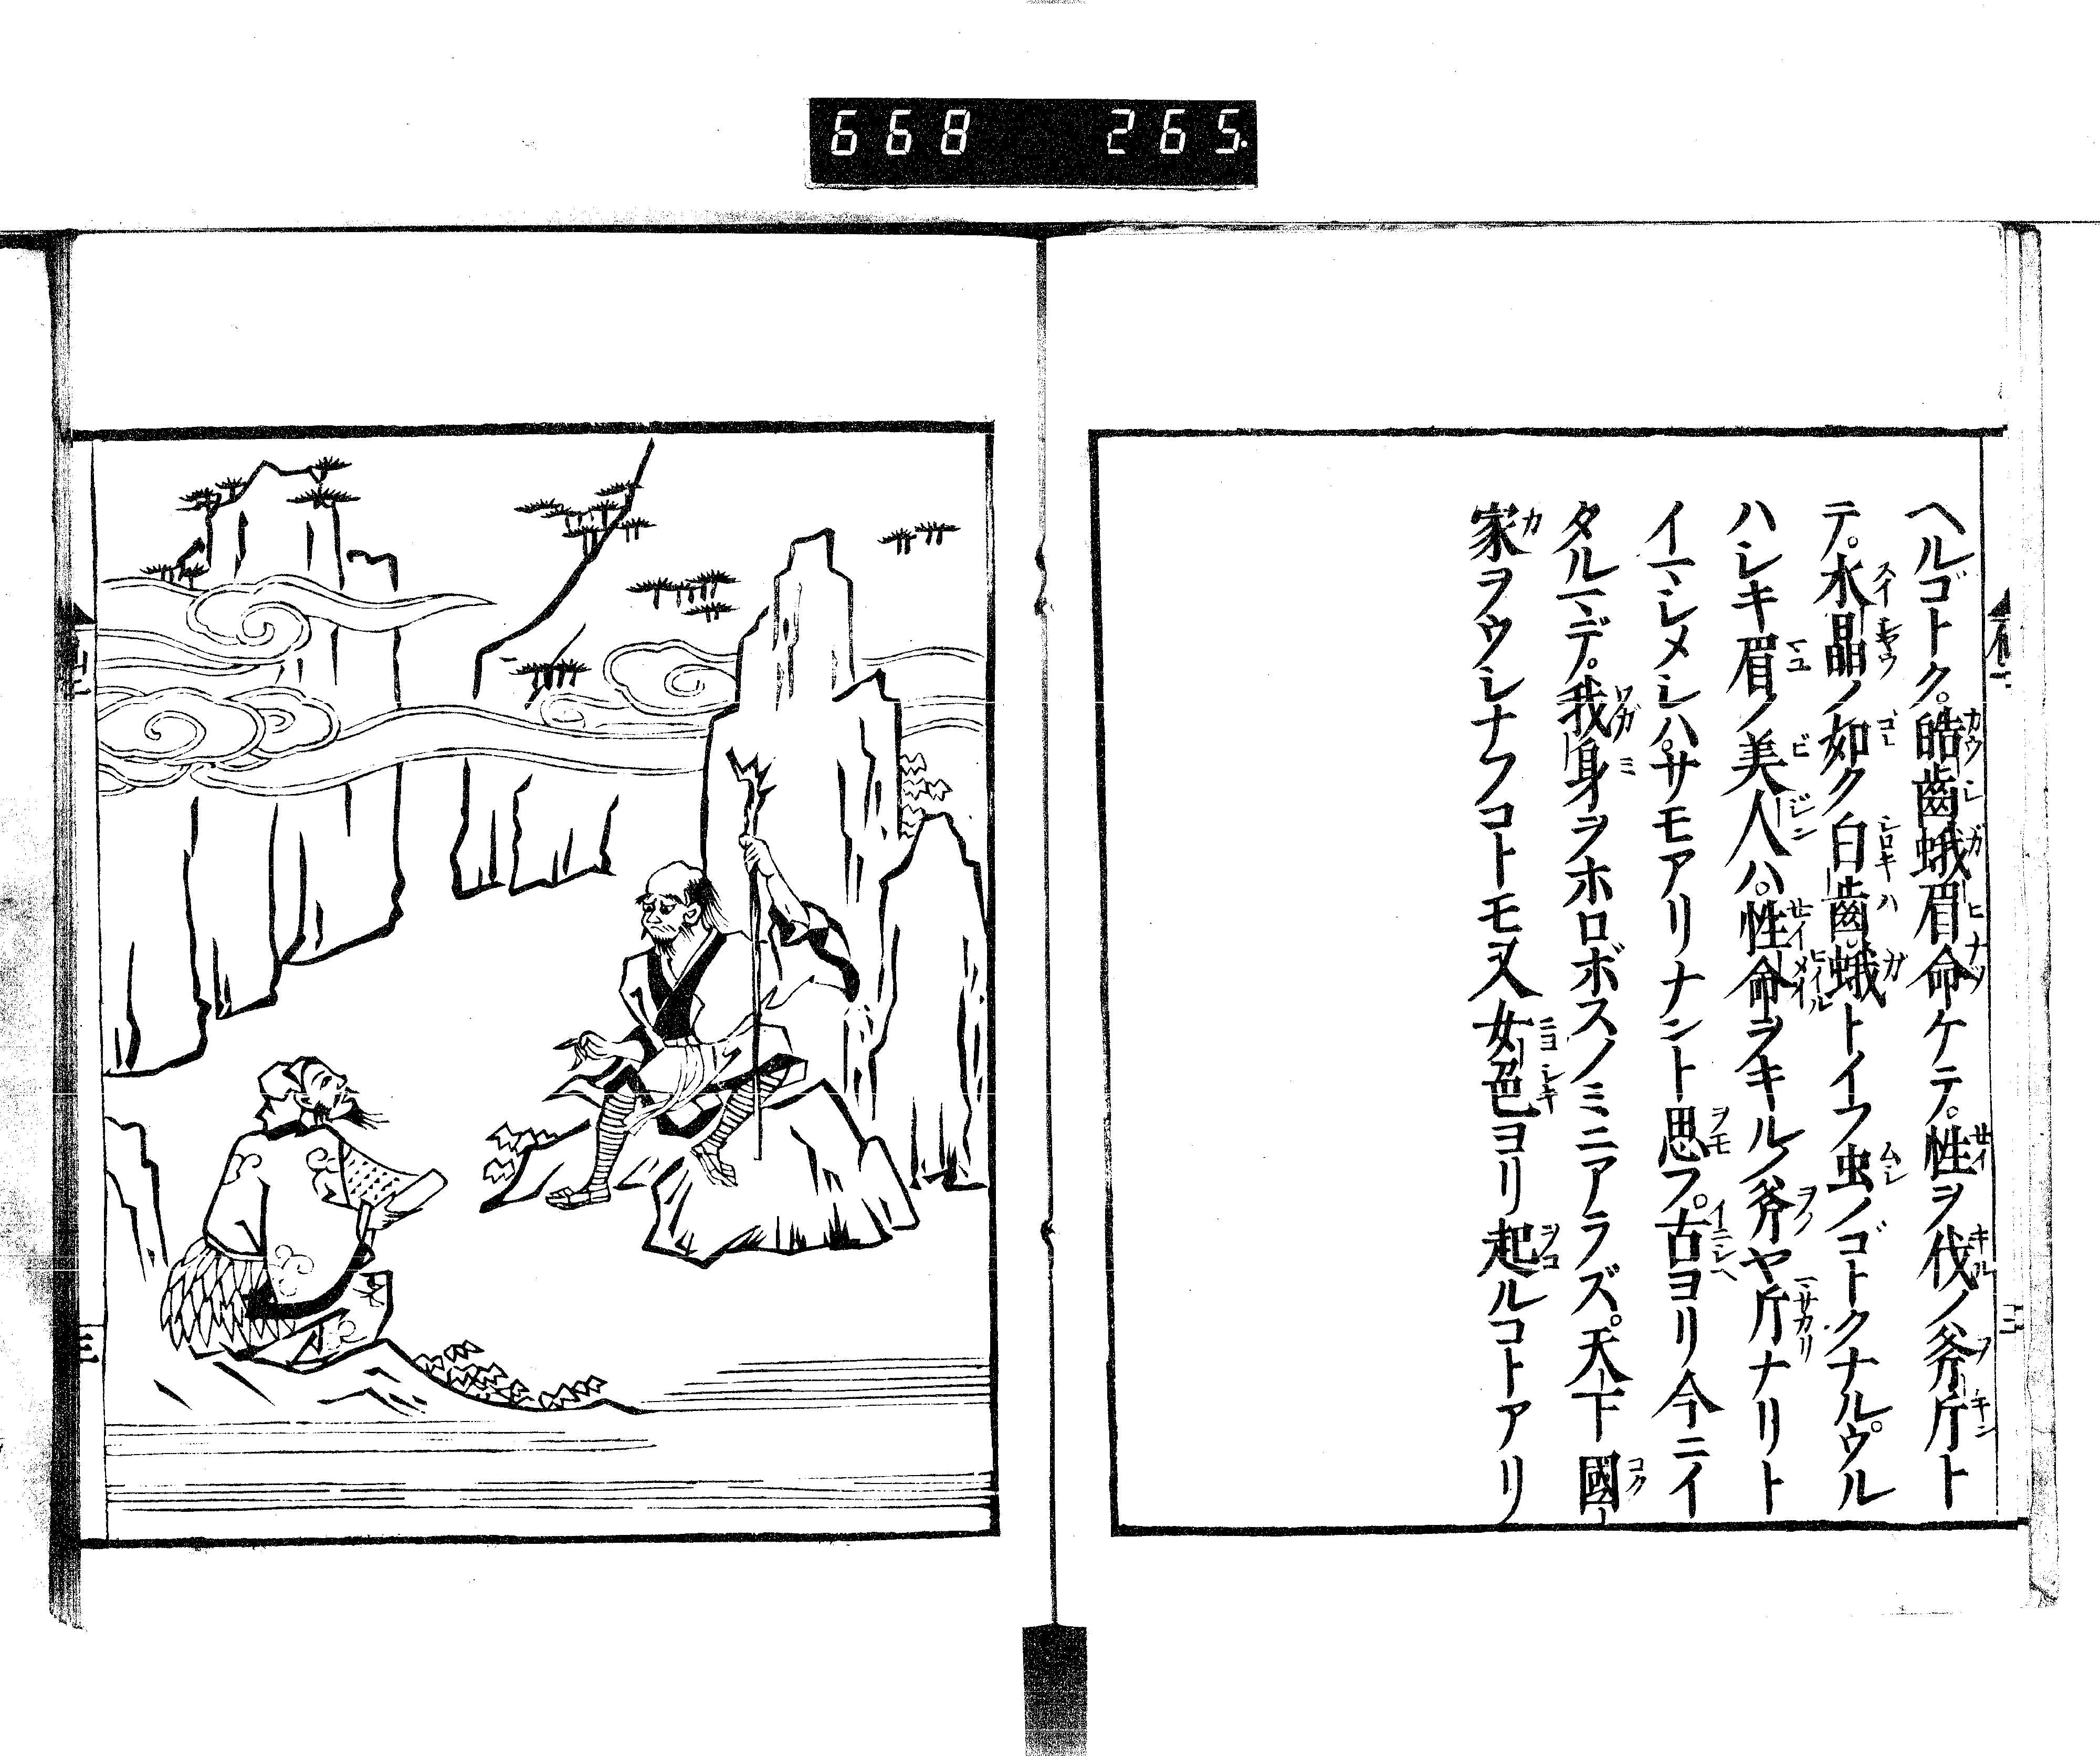 668 265.
ヘルゴトク。皓齒蛾眉命ケテ。性ヲ伐ノ斧斤ト
テ。水晶ノ如ク白齒蛾トイフ虫ノゴトクナル。ウル
ハシキ眉ノ美人ハ。性命ヲキル斧ヤ斤ナリト
イマシメシハ。サモアリナント思フ。古ヨリ今ニイ
タルマデ。我身ヲホロボスノミニアラズ。天下國
家ヲウシナフコトモ又女色ヨリ起ルコトアリ
三